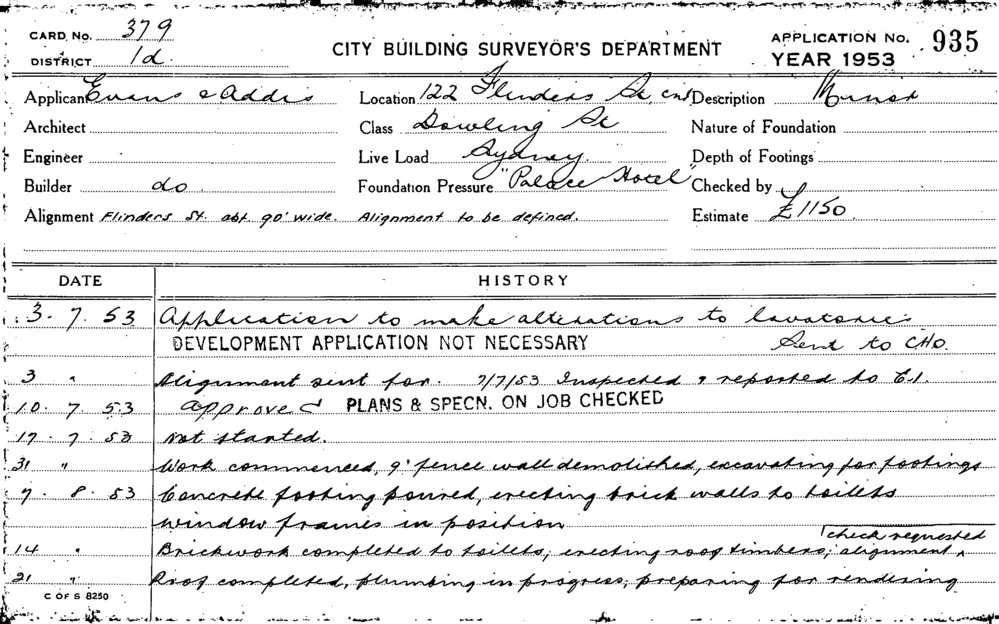 CARD. No. 379
DISTRICT 1d.
CITY BUILDING SURVEYOR'S DEPARTMENT
APPLICATION No. 935
YEAR 1953
Applicant Evans & Addis
Location 122 Flinders St, cnr
Description Minor
Architect
Class Dowling St
Nature of Foundation
Engineer
Live Load Sydney.
Depth of Footings
Builder do
Foundation Pressure "Palace Hotel"
Checked by
Alignment Flinders St. abt. 90' wide. Alignment to be defined.
Estimate £1150
DATE HISTORY
3. 7. 53 Application to make alterations to lavatories
DEVELOPMENT APPLICATION NOT NECESSARY Sent to CHO.
3 " Alignment sent for. 7/7/53 Inspected & reported to E.I.
10. 7. 53 approved PLANS & SPECN. ON JOB CHECKED
17. 7. 53 Not started.
31 " Work commenced, 9" fence wall demolished, excavating for footings
7. 8. 53 Concrete footing poured, erecting brick walls to toilets
window frames in position
check requested
14 " Brickwork completed to toilets; erecting roof timbers; alignment
21 " Roof completed, plumbing in progress; preparing for rendering
C OF S 8250